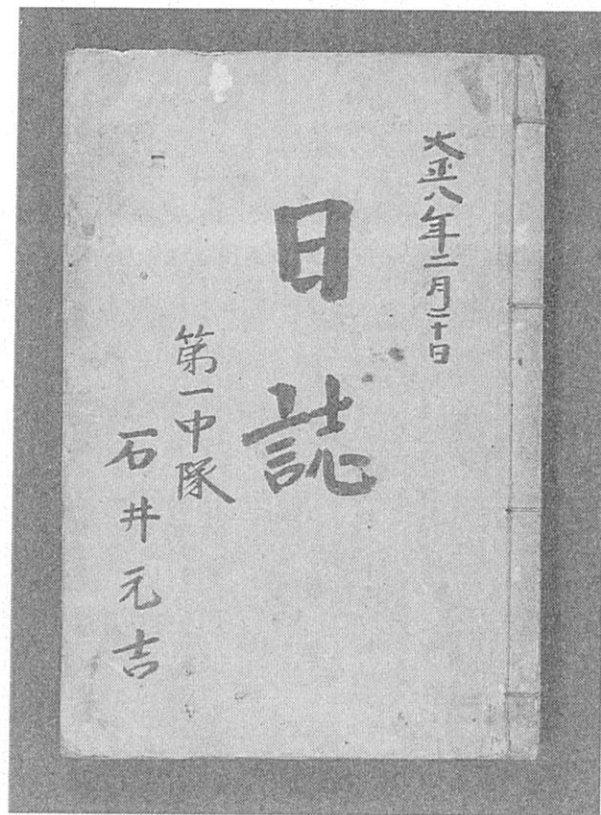 大正八年二月二十日
日誌
第一中隊
石井元吉